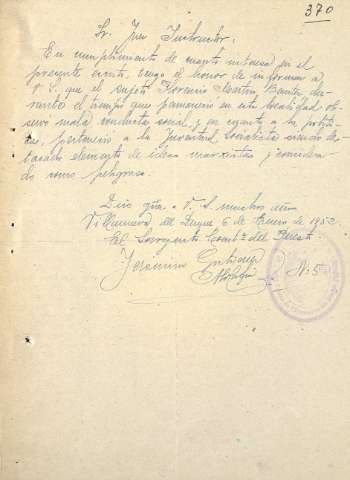 370
Sr. Juez Instructor:
En cumplimiento de cuanto interesa en el
presente escrito, tengo el honor de informar a
V. S. que el sujeto Florencio Martin Benita du-
rante el tiempo que permanecio en esta localidad ob-
servó mala conducta social, y en cuanto a la politi-
ca, pertenecio a la Juventud Socialista siendo des-
tacado elemento de ideas marxistas y considera-
do como peligroso.
Dios gûe. a V. S. muchos años
Villanueva del Duque 6 de Enero de 1952
El Sargento Comte. del Puesto
Jeronimo Gutierrez
Nº 5